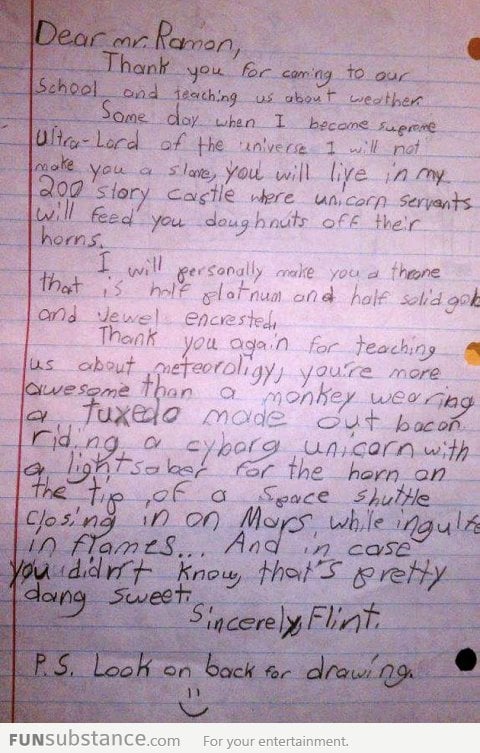 Dear mr. Ramon,
Thank you for coming to our
School and teaching us about weather.
Some day when I become supreme
Ultra-Lord of the universe I will not
make you a slave, you will live in my
200 story castle where unicorn servants
will feed you doughnuts off their
horns.
I will personally make you a throne
that is half platnum and half solid gold
and jewel encrested.
Thank you again for teaching
us about meteoroligy, you're more
awesome than a monkey wearing
a tuxedo made out bacon
riding a cyborg unicorn with
a lightsaber for the horn on
the tip of a space shuttle
closing in on Mars while ingulfed
in flames... And in case
you didn't know, that's pretty
dang sweet.
Sincerely, Flint.
P.S. Look on back for drawing.
FUNsubstance.com For your entertainment.